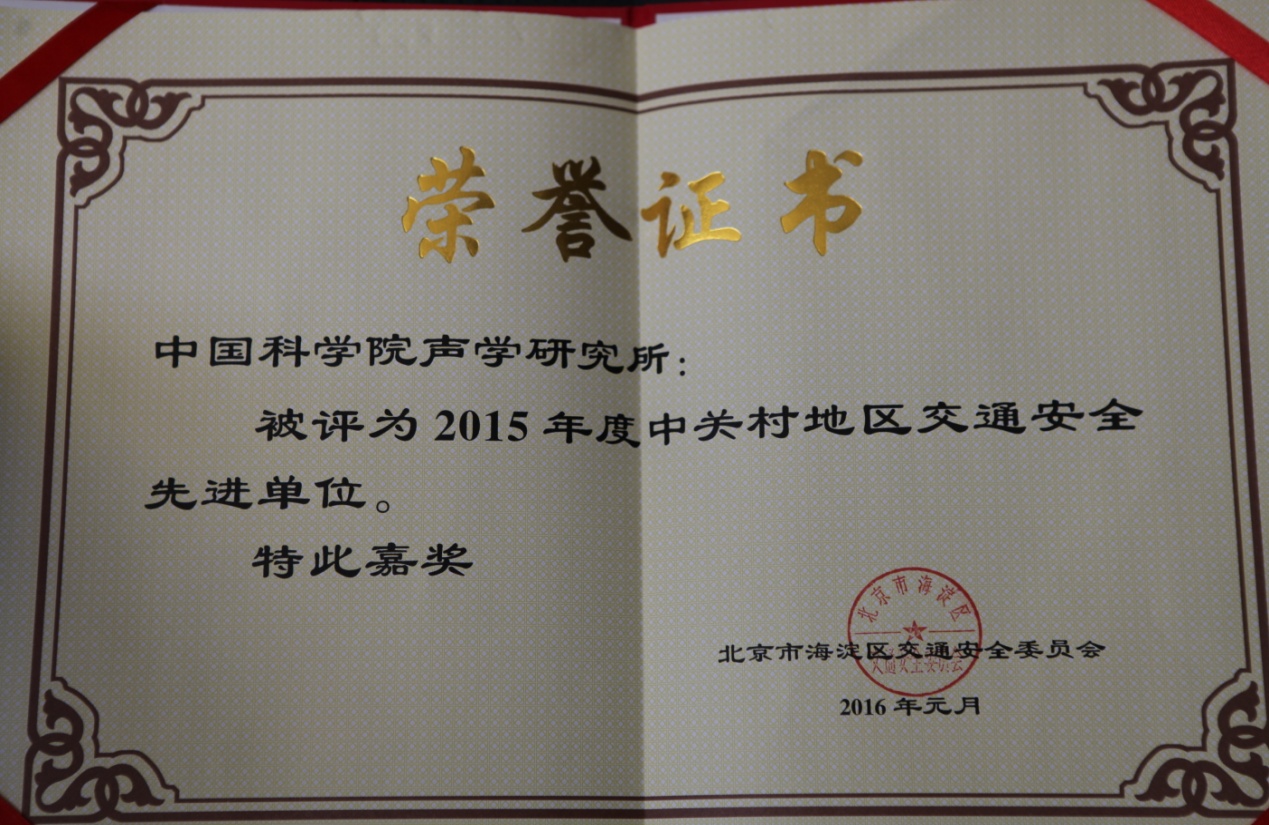 荣誉证书
中国科学院声学研究所：
被评为2015年度中关村地区交通安全
先进单位。
特此嘉奖
北京市海淀区
交通安全委员会
北京市海淀区交通安全委员会
2016年元月